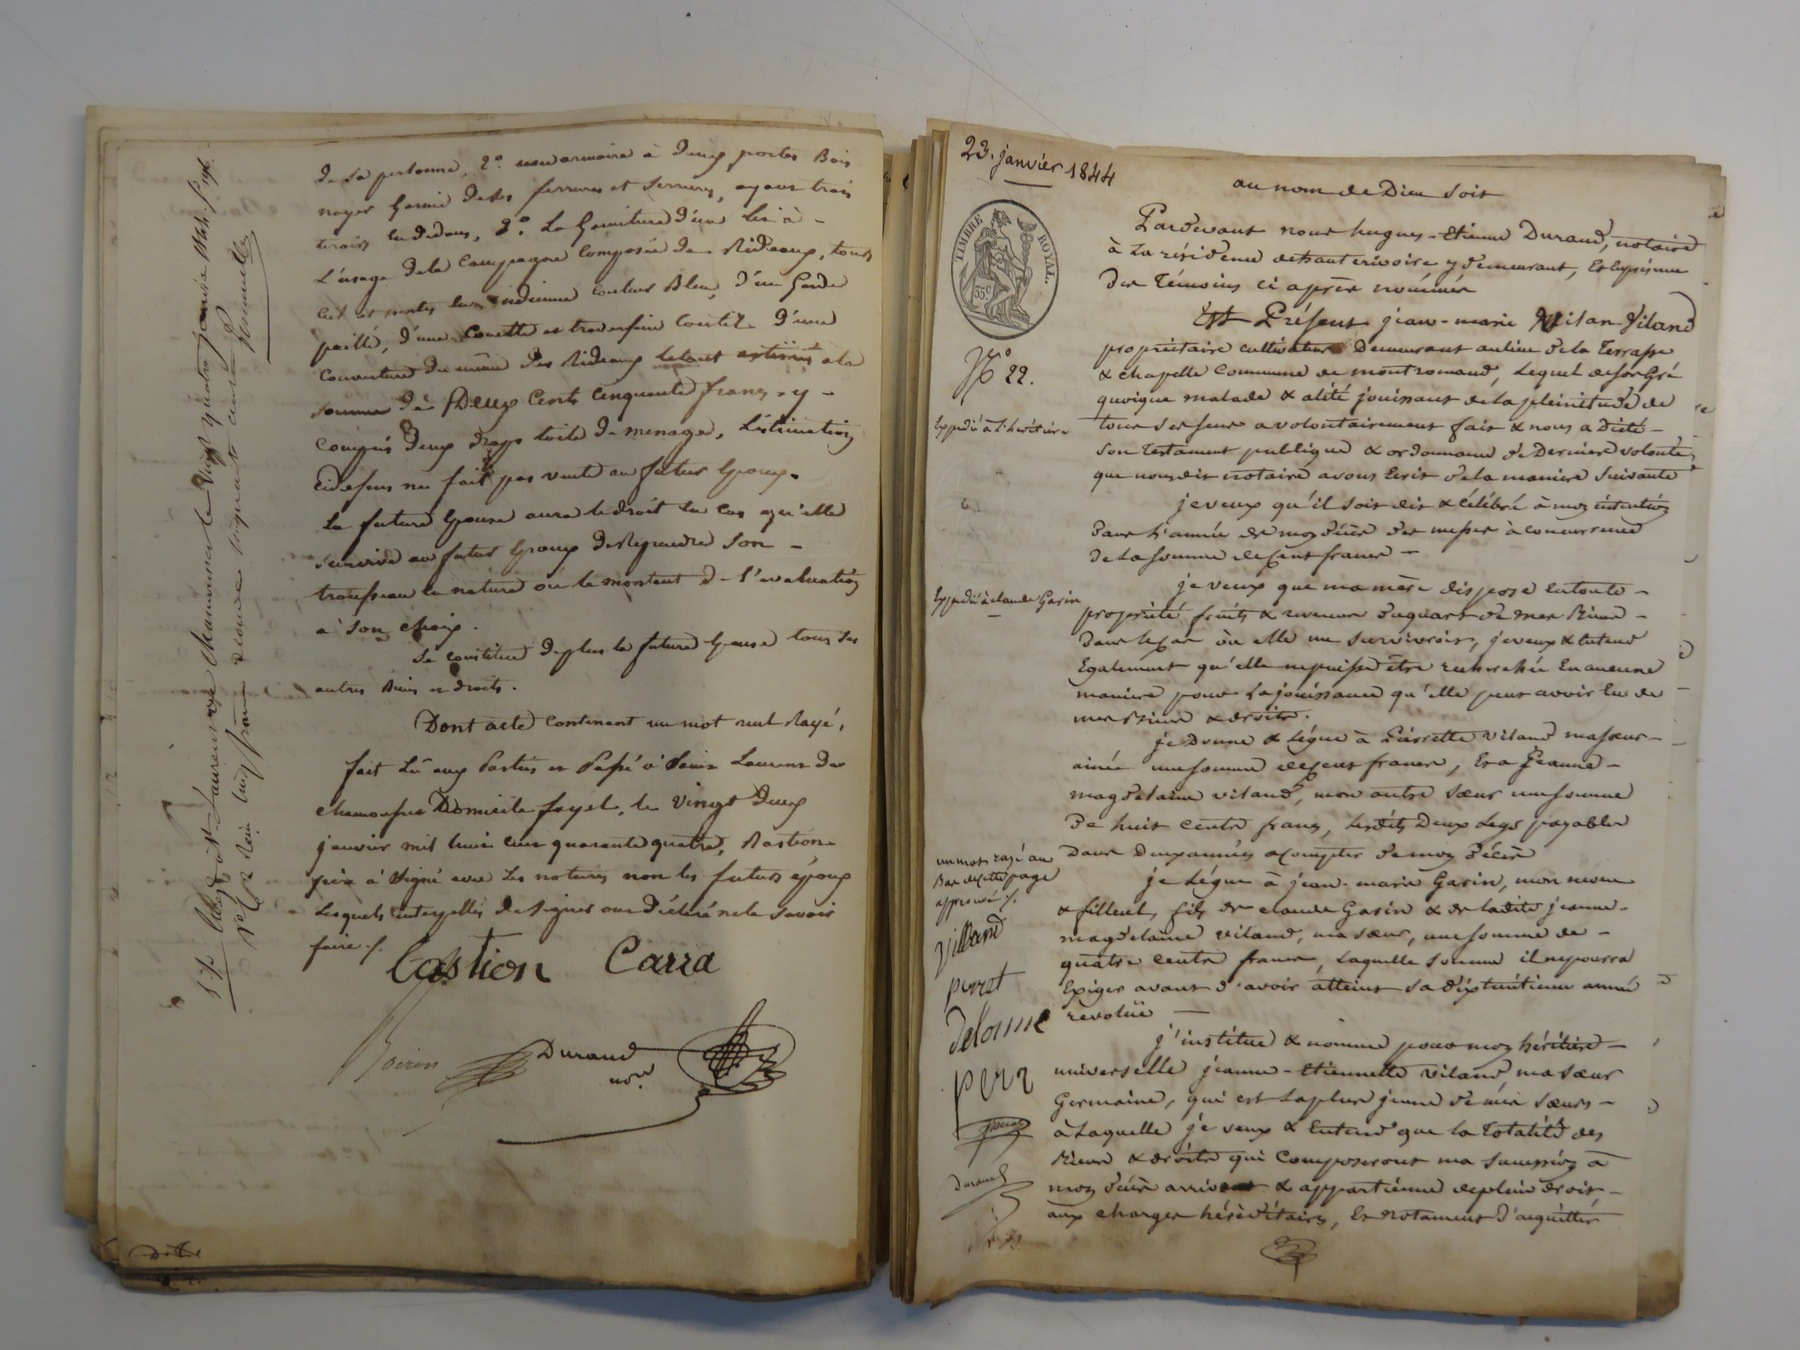 de sa personne, 2° une armoire à deux portes Bois
noyer Garnie de ses ferrures et serrures, ayant trois
tiroirs en dedans, 3° La Garniture d'un lit à
L'usage de la Campagne composée de Rideaux, tour
Ciel et pentes en indienne couleur Bleu, d'une Garde
paille, d'une Couette et traversin Coutil, d'une
Couverture du même des Rideaux le tout estimé à la
somme de Deux Cent Cinquante francs, y
Compris deux draps toile de ménage, L'estimation
cidessus ne fait pas vente au futur époux.
La future épouse aura le droit en cas qu'elle
survive au futur époux de Reprendre son
trousseau en nature ou le montant de l'evaluation
à son choix.
Se constitue de plus la future épouse tous ses
autres Biens et droits.
Dont acte Contenant un mot nul Rayé,
fait Lû aux Parties et Passé à Saint Laurent de
chamousset Domicile fayel, le vingt deux
janvier mil huit cent quarante quatre, Bastion
père à Signé avec les notaires non les futurs époux
Lesquels enterpellés de signer ont déclaré ne le savoir
faire /.
Bastion Carra
Durand
nore
Enreg. à St Laurent de Chamousset le Vingt quatre janvier 1844
francs dixième cinquante centimes
23. janvier 1844
TIMBRE ROYAL.
35 c
N° 22.
Expédié à l'héritière
Expédié à claude Garin
au nom de Dieu soit
Pardevant nous hugues-Etienne Durand, notaire
à La résidence de hauterivoire y demeurant, En présence
des Témoins ci après nommés
Est Présent jean-marie Vilan Viland
propriétaire cultivateur Demeurant au lieu de la Terrasse
& chapelle Commune de montromand, Lequel de son Gré
quoique malade & alité jouissant de la plénitude de
tous ses sens a volontairement fait & nous a dicté
son testament publique & ordonnance de Dernière volonté
que nous dit notaire avons Ecrit de la manière suivante
je veux qu'il soit dit & célébré à mon intention
Dans l'année de mon décès des messes à concurrence
de la somme de Cent francs
je veux que ma mère dispose en toute
propriété fruits & revenus du quart de mes Biens
Dans le Cas où elle me survivroit, je veux & entend
Egalement qu'elle ne puisse être recherchée En aucune
manière pour La jouissance qu'elle peut avoir Eu de
mes Biens & droits.
je Donne & Lègue à Pierrette Viland ma sœur
ainée une somme de Cent francs, Et à Jeanne
magdelaine viland, mon autre sœur une somme
De huit cents francs, Lesdits Deux Legs payables
Dans Deux années à Compter de mon décès
je Lègue à jean-marie Garin, mon neveu
& filleul, fils de claude Garin & de ladite jeanne
magdelaine viland, ma sœur, une somme de
quatre cents francs, Laquelle somme il ne pourra
Exiger avant d'avoir atteint sa dixhuitième année
révolüe
j'institue & nomme pour mon héritière
universelle jeanne-Etiennette viland ma sœur
Germaine, qui est La plus jeune de mes sœurs
à Laquelle je veux & Entend que la Totalité des
Biens & droits qui Composeront ma succession à
mon décès arrivent & appartienne de plein droit,
aux charges héréditaires, Et Notament d'acquitter
un mot rayé au
Bas de cette page
approuvé /.
Villand
perret
Delorme
Durand